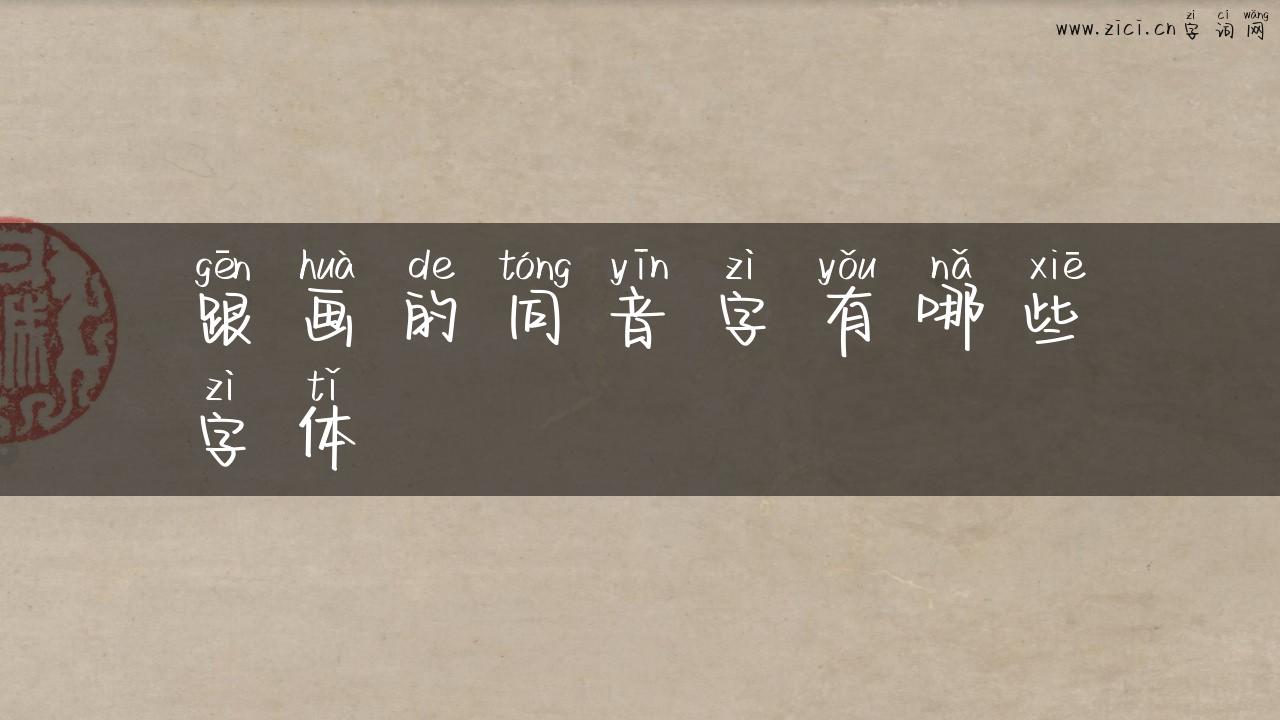 zì cí wǎng
www.zici.cn 字词网
gēn huà de tóng yīn zì yǒu nǎ xiē
跟画的同音字有哪些
zì tǐ
字体